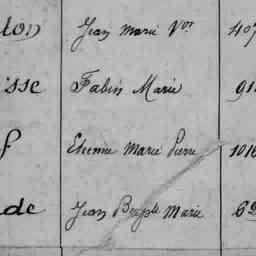 ton Jean Marie Vor 407
isse Fabien Marie 91
f Etienne Marie Pierre 1016
de Jean Bapte Marie 6